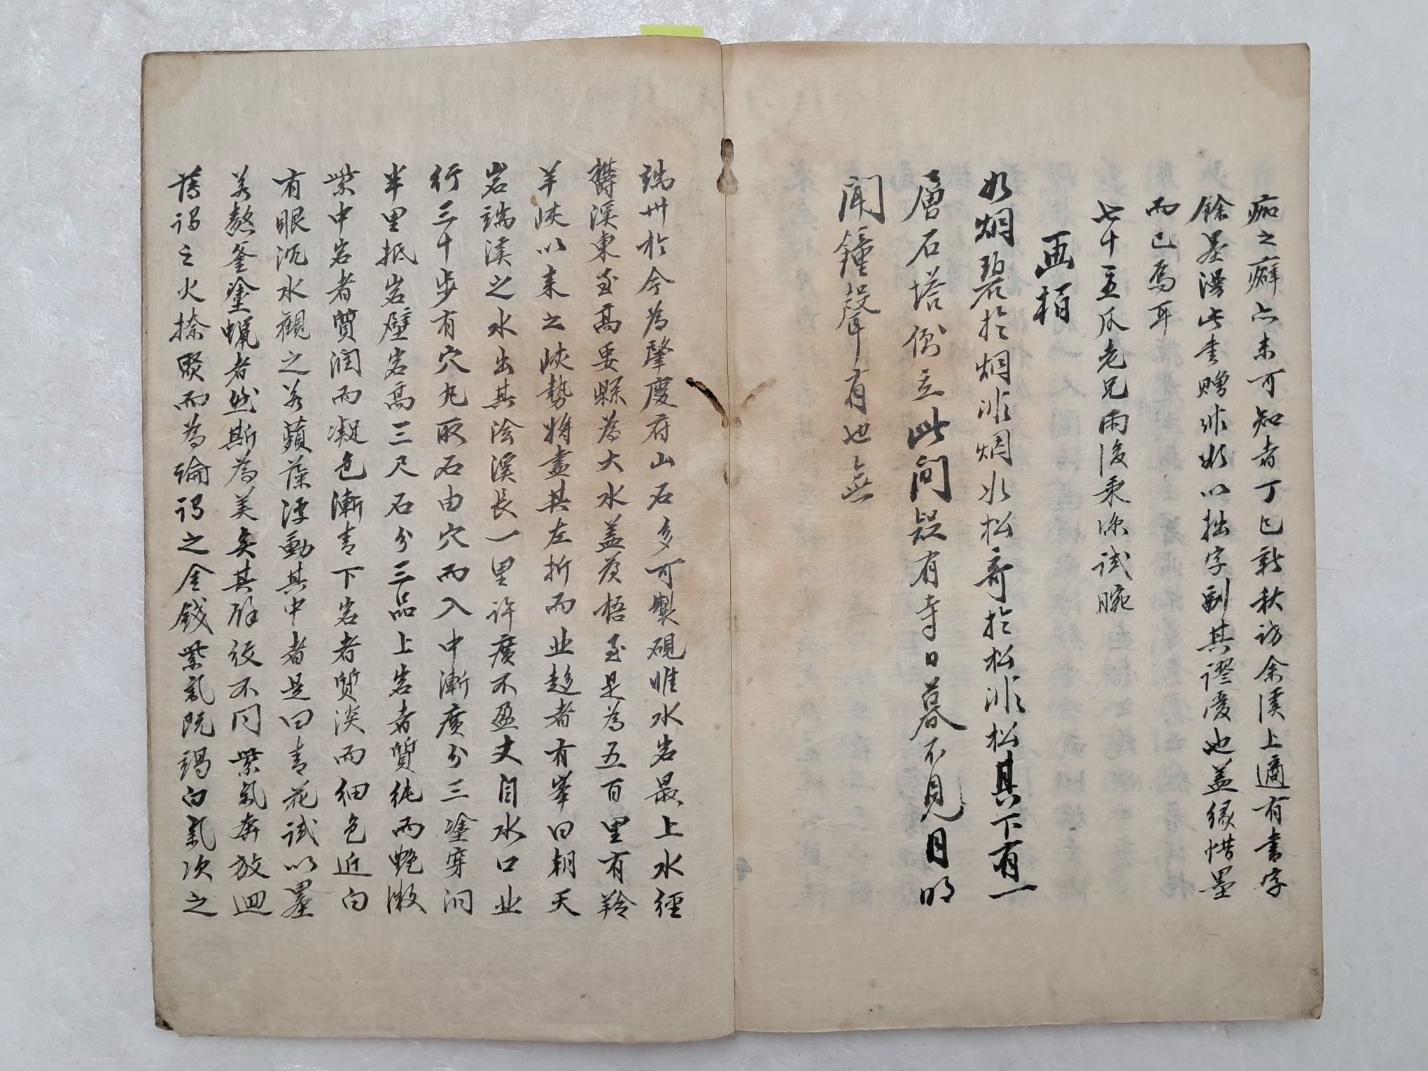 痂之癖亦未可知者丁巳新秋訪余溪上適有書字
餘墨漫此書贈非欲以拙字副其謬愛也蓋緣惜墨
而已焉耳
七十五瓜老兄雨後乘涼試腕
画栢
以烟碧於烟非烟以松奇於松非松其下有一
層石塔倒立此间疑有寺日暮不見月明
聞鐘聲有也無
端州於今為肇慶府山石多可製硯惟水岩最上水經
欝溪東至高要縣為大水蓋蒼梧至是為五百里有羚
羊峽以束之峽勢将盡其左折而北趍者有峯曰朝天
岩端溪之水出其陰溪長一里許廣不盈丈自水口北
行三十步有穴凡取石由穴而入中漸廣分三塗穿洞
半里抵岩壁岩高三尺石分三品上岩者質純而艶微
紫中岩者質潤而凝色漸青下岩者質淡而細色近白
有眼沉水觀之若蘋藻浮動其中者是曰青花試以墨
若熬釜塗蝋者然斯為美矣其 後不同紫氣奔放迴
薄謂之火捺聚而為綸謂之金錢紫氣既竭白氣次之